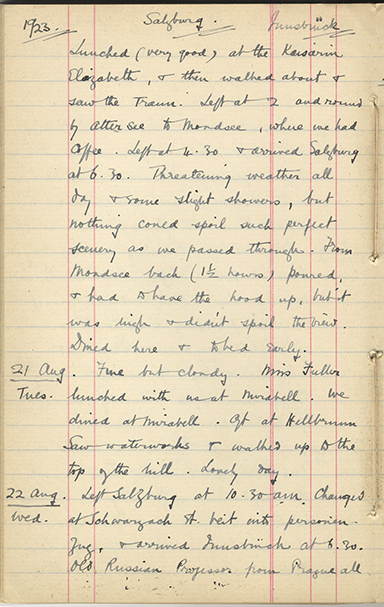 1923. Salzburg. Innsbrück
Lunched (very good) at the Kaisarin
Elizabeth, & then walked about &
saw the Traun. Left at 2 and round
by Atter See to Mondsee, where we had
coffee. Left at 4.30 & arrived Salzburg
at 6.30. Threatening weather all
day & some slight showers, but
nothing could spoil such perfect
scenery as we passed through. From
Mondsee back (1½ hours) poured,
& had to have the hood up, but it
was high & didn't spoil the view.
Dined here & to bed early.
21 Aug. Fine but cloudy. Miss Fuller
Tues. lunched with us at Mirabell. We
dined at Mirabell. at Hellbrunn
Saw waterworks & walked up to the
top of the hill. Lovely day.
22 Aug. Left Salzburg at 10.30 am. Changed
Wed. at Schwarzach St. Veit into personen
Zug, & arrived Innsbrück at 6.30.
Old Russian Professor from Prague all